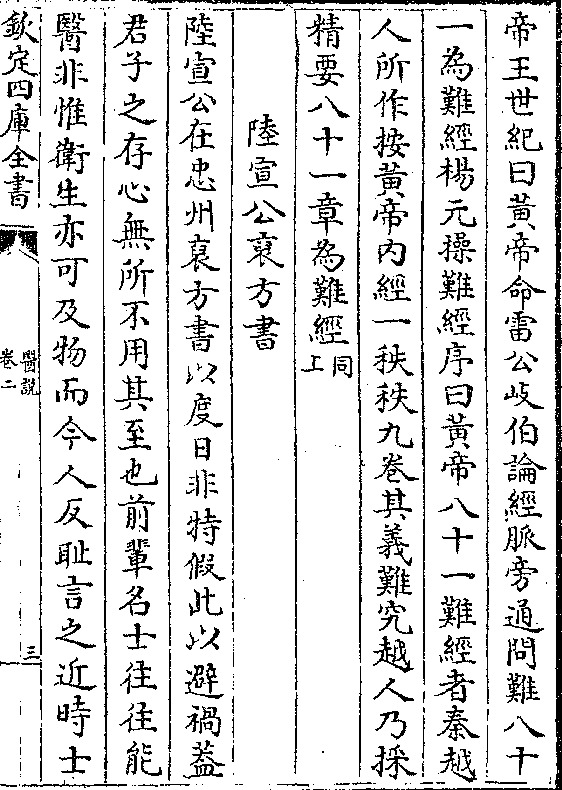 帝王世紀曰黃帝命雷公岐伯論經脈旁通問難八十
一為難經楊元操難經序曰黃帝八十一難經者秦越
人所作按黃帝內經一秩秩九卷其義難究越人乃採
精要八十一章為難經同上
陸宣公裒方書
陸宣公在忠州裒方書以度日非特假此以避禍蓋
君子之存心無所不用其至也前輩名士往往能
醫非惟衛生亦可及物而今人反耻言之近時士
欽定四庫全書
醫說
卷二
三